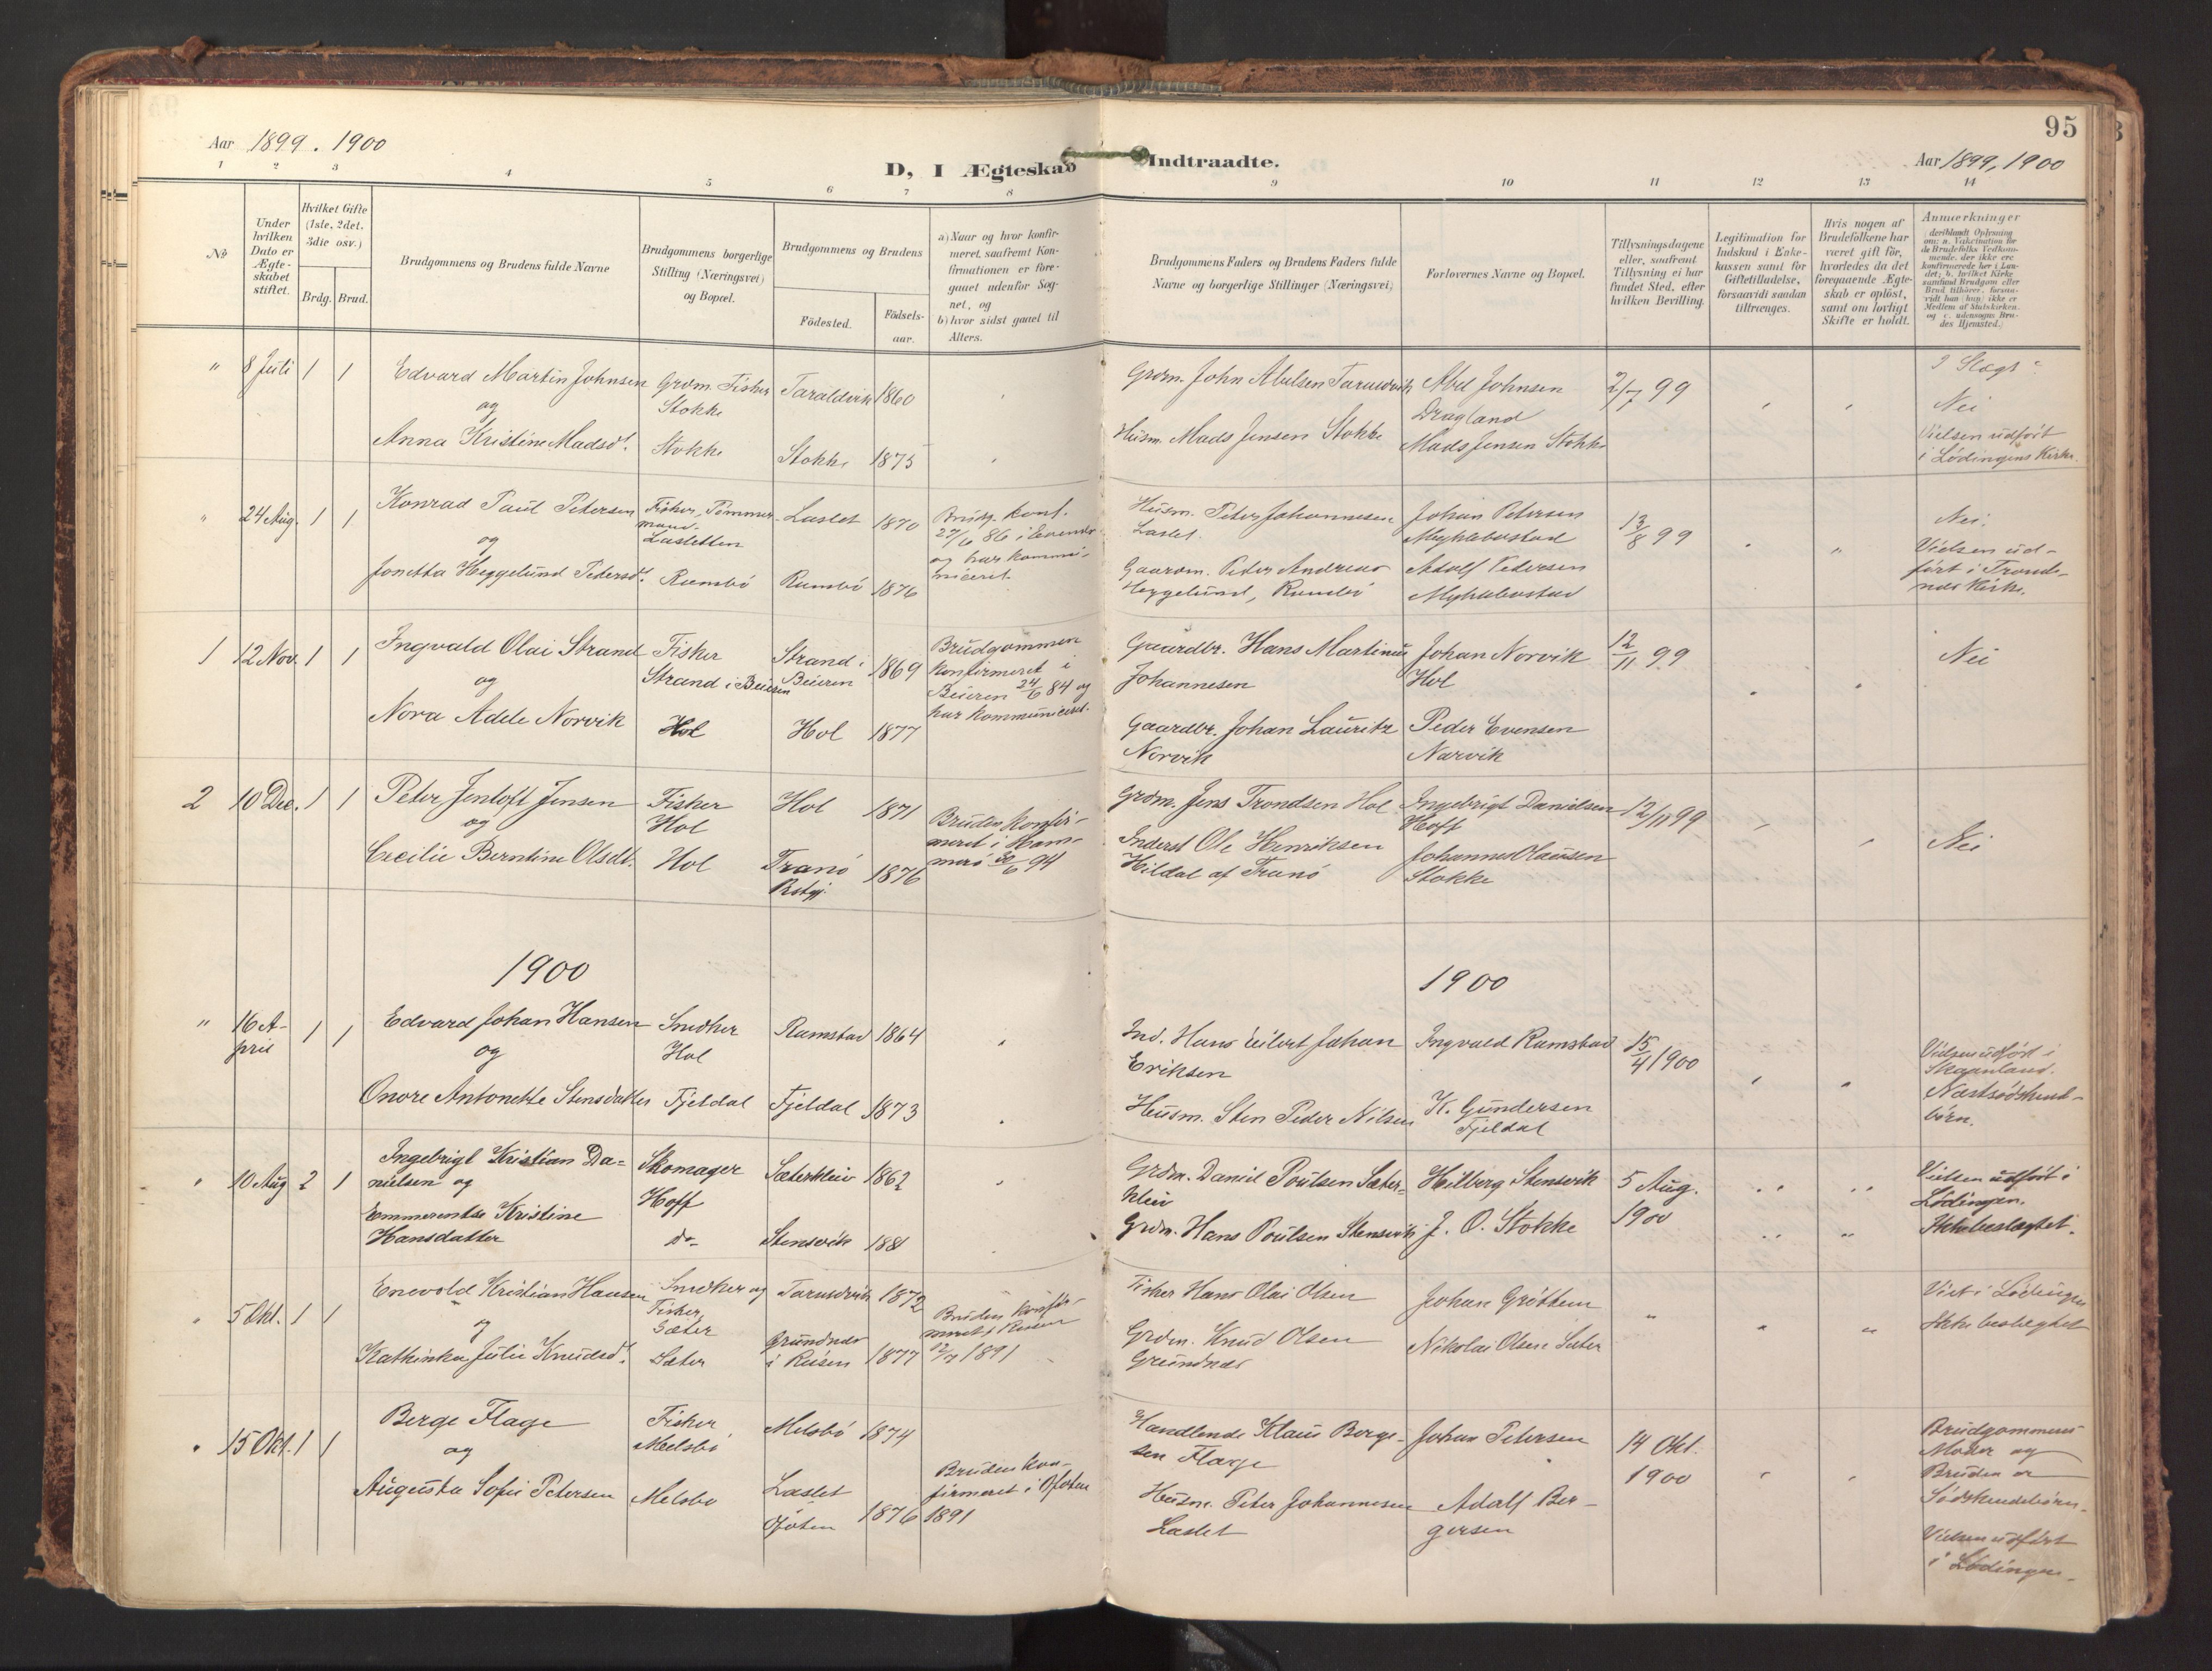 95
Aar 1899. 1900
D, I Ægteskab Indtraadte.
Aar 1899, 1900
1 2 3 4 5 6 7 8 9 10 11 12 13 14
No
Under
hvilken
Dato er
Ægte-
skabet
stiftet.
Hvilket Gifte
(1ste, 2det,
3die osv.)
Brdg. Brud.
Brudgommens og Brudens fulde Navne
Brudgommens borgerlige
Stilling (Næringsvei)
og Bopæl.
Brudgommens og Brudens
Födested.
Födsels-
aar.
a) Naar og hvor konfir-
meret, saafremt Kon-
firmationen er fore-
gaaet udenfor Sog-
net, og
b) hvor sidst gaaet til
Alters.
Brudgommens Faders og Brudens Faders fulde
Navne og borgerlige Stillinger (Næringsvei)
Forlovernes Navne og Bopæl.
Tillysningsdagene
eller, saafremt
Tillysning ei har
fundet Sted, efter
hvilken Bevilling.
Legitimation for
Indskud i Enke-
kassen samt for
Giftetilladelse,
forsaavidt saadan
tiltrænges.
Hvis nogen af
Brudefolkene har
været gift för,
hvorledes da det
foregaaende Ægte-
skab er oplöst,
samt om lovligt
Skifte er holdt.
Anmærkninger
(deriblandt Oplysning
om: a. Vakcination for
de Brudefolks Vedkom-
mende, der ikke ere
konfirmerede her i Lan-
det; b. hvilket Kirke
samfund Brudgom eller
Brud tilhörer, forsaa-
vidt han (hun) ikke er
Medlem af Statskirken,
og c. udensogns Bru-
des Hjemsted.)
" 8 Juli 1 1
Edvard Martin Johnsen
og
Anna Kristine Madsdt.
Grdm. Fisker
Stokke
Stokke
Taraldvik 1860
Stokke 1875
Grdm. John Abelsen
Husm. Mads Jensen Stokke
Abel Johnsen
Dragland
Mads Jensen Stokke
2/7 99
Nei
Vielsen udført
i Lødingens Kirke.
" 24 Aug. 1 1
Konrad Paul Petersen
og
Jonetta Heggelund Pedersdt.
Fisker, Tømmer-
mand.
Lasletten
Rambø
Laslet 1870
Rambø 1876
Brudg. konf.
27/6 86 i Evenes
og har kommu-
niceret.
Husm. Peter Johannesen
Laslet.
Gaardm. Peder Andreas
Heggelund, Rambø
Johan Petersen
Myklebostad
Adolf Pedersen
Myklebostad
13/8 99
Nei.
Vielsen ud-
ført i Tronde-
nes Kirke.
1 12 Nov. 1 1
Ingvald Olai Strand
og
Nora Adele Norvik
Fisker
Strand i Beieren
Hol
Strand i
Beieren 1869
Hol 1877
Brudgommen
konfirmeret i
Beieren 24/6 84 og
har kommuniceret.
Gaardbr. Hans Martinus
Johannesen
Gaardbr. Johan Lauritz
Norvik
Johan Norvik
Hol
Peder Evensen
Narvik
12/11 99
Nei
2 10 Dec. 1 1
Peter Jentoft Jensen
og
Cecilie Berntine Olsdt.
Fisker
Hol
Hol
Hol 1871
Tranö
Prstgj. 1876
Bruden konfir-
meret i Ham-
merö 30/6 94
Grdm. Jens Trondsen Hol
Inderst Ole Henriksen
Hildal af Tranö
Ingebrigt Danielsen
Hoff
Johannes Olausen
Stokke
12/11 99
Nei
1900
1900
" 16 A-
pril 1 1
Edvard Johan Hansen
og
Onore Antonette Stensdatter
Snedker
Hol
Fjeldal
Ramstad 1864
Fjeldal 1873
Ind. Hans Eilert Johan
Eriksen
Husm. Sten Peder Nilsen
Ingvald Ramstad
K. Gundersen
Fjeldal
15/4 1900
Vielsen udført i
Skaanland.
Næstsødskend-
børn.
" 10 Aug 2 1
Ingebrigt Kristian Da-
nielsen og
Emmerentse Kristine
Hansdatter
Skomager
Hoff
Do
Sæterkleiv 1862
Stensvik 1881
Grdm. Daniel Poulsen Sæter-
kleiv
Grdm. Hans Poulsen Stensvik
Hilberg Stensvik
J. O. Stokke
5 Aug.
1900
Vielsen udført i
Lödingen.
Ikke beslægtet.
" 5 Okt. 1 1
Enevold Kristian Hansen
og
Kathinka Julie Knudsdt.
Snedker og
Fisker,
Sæter
Sæter
1872
Grundnes
i Reisen 1877
Bruden konfir-
meret i
12/7 1891
Fisker Hans Olai Olsen
Grdm. Knud Olsen
Grundnes
Johan Grøttem
Nikolai Olsen Sæter
Viet i Lødingen
Ikke beslægtet
" 15 Okt. 1 1
Berge Flage
og
Augusta Sofie Petersen
Fisker
Melsbö
Melsbö
Melsbö 1874
Laslet
Ofoten 1876
Bruden kon-
firmeret i Ofoten
1891
Handlende Klaus Berge-
sen Flage
Husm. Peter Johannesen
Laslet
Johan Petersen
Adolf Ber-
gersen
14 Okt.
1900
Brudgommens
Moder og
Bruden er
Södskendebörn.
Vielsen udført
i Lødingen.